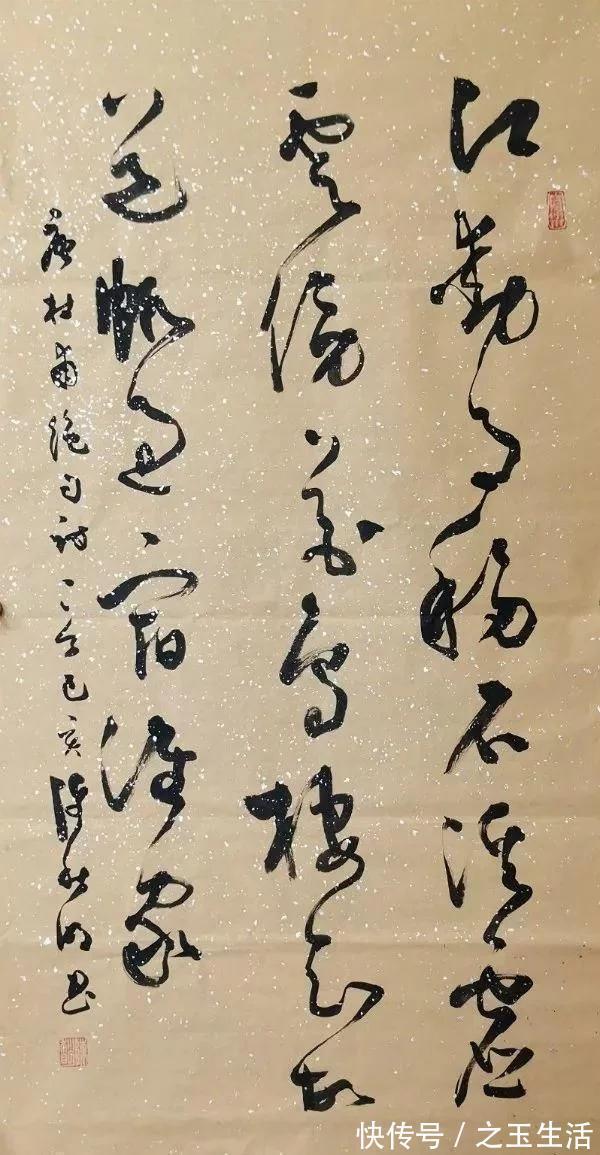 江動月移石溪虛
雲傍花鳥棲知故
道帆過宿誰家
唐杜甫絕句詩一首己亥書
快传号 / 之玉生活